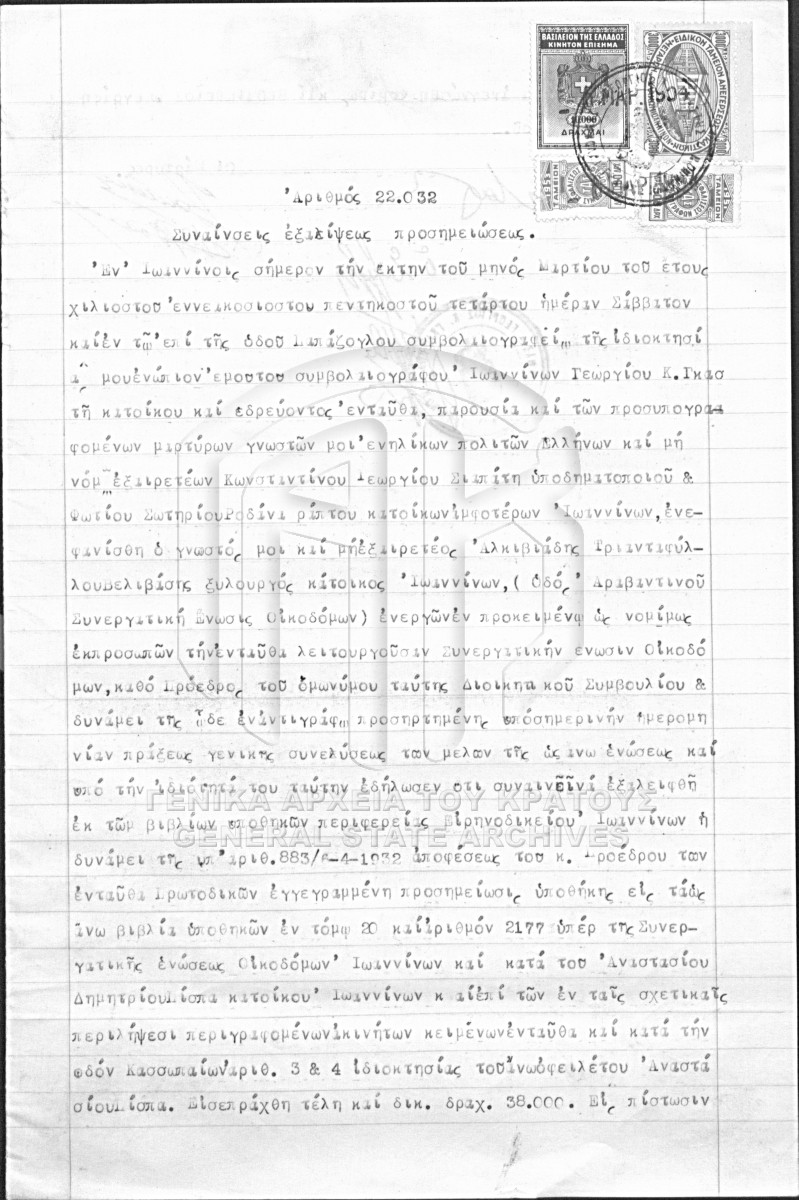 ΒΑΣΙΛΕΙΟΝ ΤΗΣ ΕΛΛΑΔΟΣ
ΚΙΝΗΤΟΝ ΕΠΙΣΗΜΑ
ΔΡΑΧΜΑΙ
ΕΙΔΙΚΟΝ ΤΑΜΕΙΟΝ ΑΝΕΓΕΡΣΕΩΣ
ΤΑΜΕΙΟΝ
Ἀριθμός 22.032
Συναίνσεις ἐξαλείψεως προσημειώσεως.
Ἐν' Ἰωαννίνοις σήμερον τήν ἕκτην τοῦ μηνός Μαρτίου τοῦ ἔτους
χιλιοστοῦ ἐννεακοσιοστου πεντηκοστοῦ τετάρτου ἡμέραν Σάββατον
καίἐν τῷ ἐπί τῆς ὁδοῦ συμβολαιογραφείῳ τῆς ἰδιοκτησί
ας μουἐνώπιον ἐμουτου συμβολαιογράφου Ἰωαννίνων Γεωργίου Κ. Γκασ
τῆ κατοίκου καί ἑδρεύοντος ἐνταῦθα, παρουσία καί τῶν προσυπογρα
φομένων μαρτύρων γνωστῶν μοι ἐνηλίκων πολιτῶν Ἑλλήνων καί μή
νόμῳ ἐξαιρετέων Κωνσταντίνου Γεωργίου Σιαπάτη ὑποδηματοποιοῦ &
Φωτίου ΣωτηρίουΡοδίνα ράπτου κατοίκωνἀμφοτέρων Ἰωαννίνων, ἐνε-
φανίσθη ὁ γνωστός μοι καί μήἐξαιρετέος Ἀλκιβιάδης Τριανταφύλ-
λουΒελιβάσης ξυλουργός κάτοικος Ἰωαννίνων, ( ὁδός Ἀραβαντινοῦ
Συνεργατική Ἕνωσις Οἰκοδόμων ) ἐνεργῶνἐν προκειμένῳ ὡς νομίμως
ἐκπροσωπῶν τήνἐνταῦθα λειτουργοῦσαν Συνεργατικήν ἕνωσιν Οἰκοδό
μων, καθό Πρόεδρος τοῦ ὁμωνύμου ταύτης Διοικητικοῦ Συμβουλίου &
δυνάμει τῆς ὧδε ἐνἀντιγράφῳ προσηρτημένης ὑπόσημερινήν ἡμερομη
νίαν πράξεως γενικῆς συνελύσεως των μελων τῆς ὡς ἄνω ἑνώσεως καί
ὑπό τήν ἰδιότητά του ταύτην ἐδήλωσεν οτι συναινεῖνά ἐξαλειφθῆ
ΓΕΝΙΚΑ ΑΡΧΕΙΑ ΤΟΥ ΚΡΑΤΟΥΣ
ἐκ τῶν βιβλίων ὑποθηκῶν περιφερείας Εἰρηνοδικείου Ἰωαννίνων ἡ
GENERAL STATE ARCHIVES
δυνάμει τῆς ὑπ'ἀριθ. 883/6-4-1932 ἀποφάσεως του κ. Προέδρου των
ἐνταῦθα Πρωτοδικῶν ἐγγεγραμμένη προσημείωσις ὑποθήκης εἰς τάὡς
ἄνω βιβλία ὑποθηκῶν ἐν τόμῳ 20 καίἀριθμόν 2177 ὑπέρ τῆς Συνερ-
γατικῆς ἑνώσεως Οἰκοδόμων Ἰωαννίνων καί κατά του Ἀναστασίου
ΔημητρίουΛίσπα κατοίκου Ἰωαννίνων κ αίἐπί τῶν ἐν ταῖς σχετικαῖς
περιλήψεσι περιγραφομένωνἀκινήτων κειμένωνἐνταῦθα καί κατά τήν
ὁδόν Κασσωπαίωνἀριθ. 3 & 4 ἰδιοκτησίας τοῦἄνωὀφειλέτου Ἀναστα
σίουΛίσπα. Εἰσεπράχθη τέλη καί δικ. δραχ. 38.000. Εἰς πίστωσιν